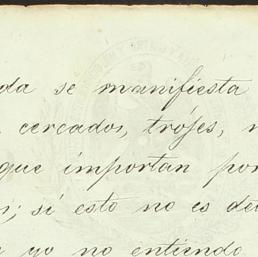 da se manifiesta
cercados, trójes,
que importan por
; si esto no es de
yo no entiendo